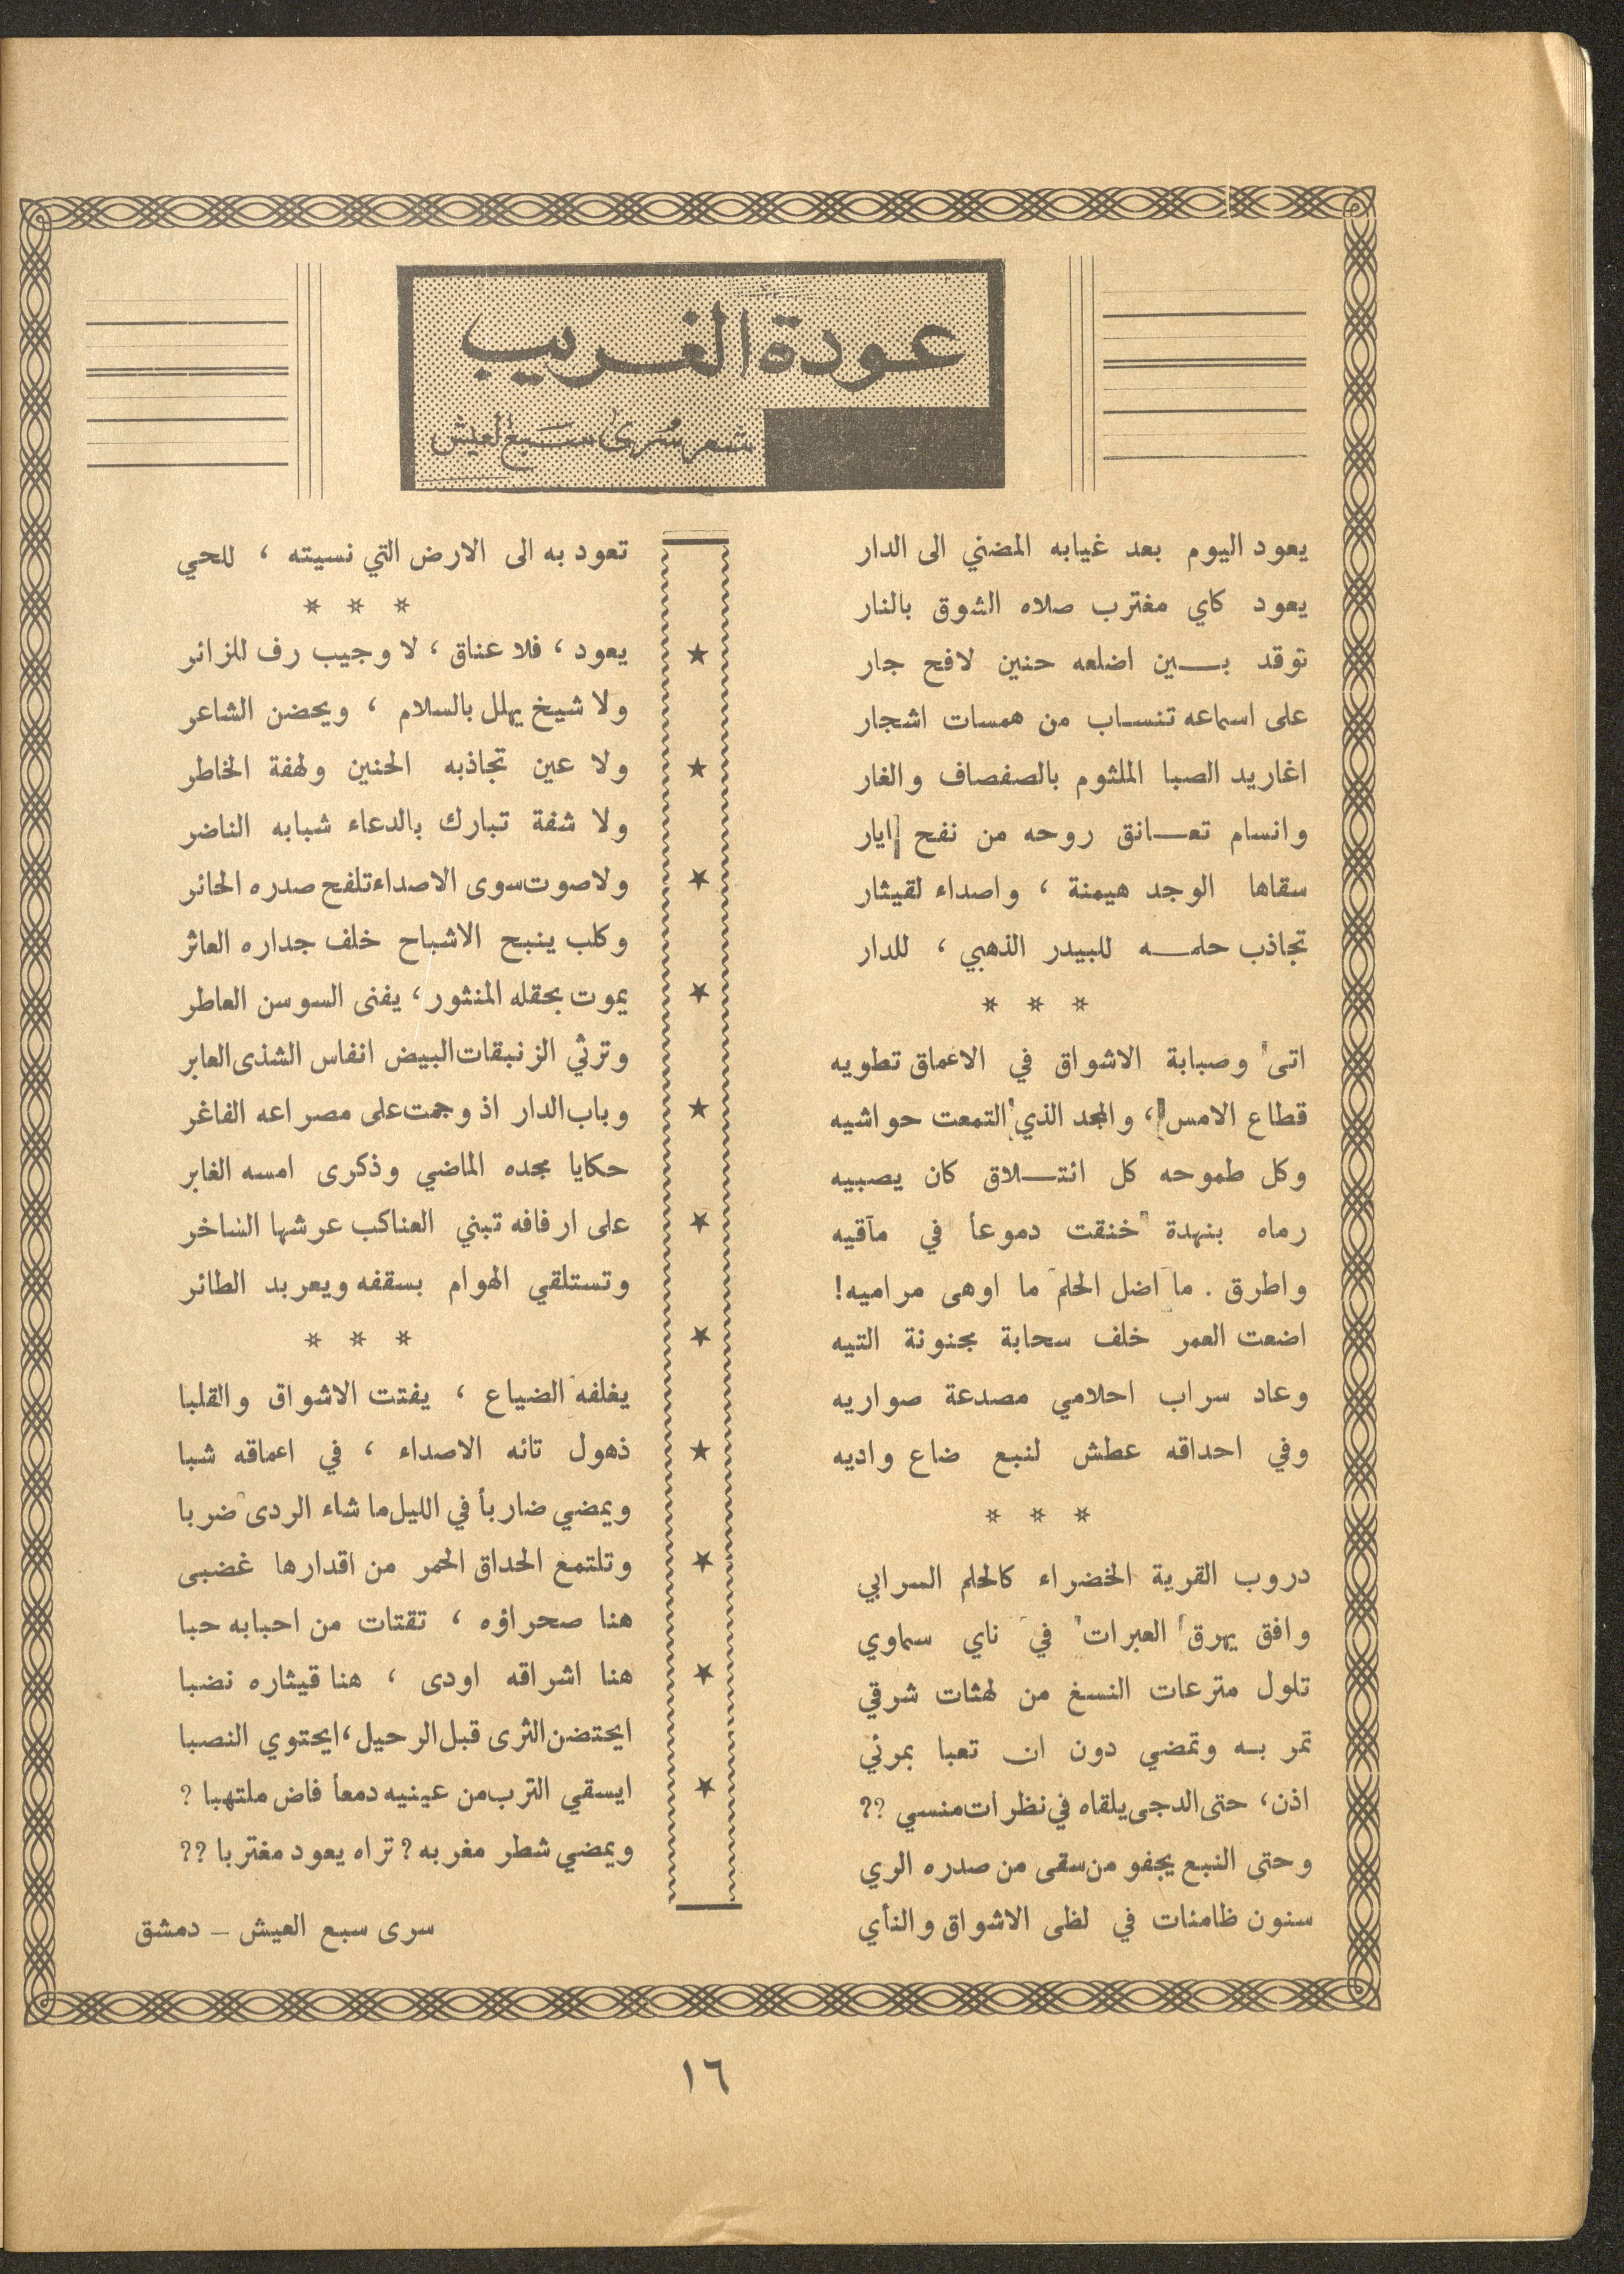 عودة الغريب
شعر سرى سبع العيش
يعود اليوم بعد غيابه المضني الى الدار
يعود كاي مغترب صلاه الشوق بالنار
توقد بين اضلعه حنين لافح جار
على اسماعه تنساب من همسات اشجار
اغاريد الصبا الملثوم بالصفصاف والغار
وانسام تعانق روحه من نفح ايار
سقاها الوجد هيمنة ، واصداء لقيثار
تجاذب حلمه للبيدر الذهبي ، للدار
* * *
اتى وصبابة الاشواق في الاعماق تطويه
قطاع الامس ، والمجد الذي التمعت حواشيه
وكل طموحه كل ائتلاق كان يصبيه
رماه بنهدة خنقت دموعاً في مآقيه
واطرق . ما اضل الحلم ما اوهى مراميه!
اضعت العمر خلف سحابة مجنونة التيه
وعاد سراب احلامي مصدعة صواريه
وفي احداقه عطش لنبع ضاع واديه
* * *
دروب القرية الخضراء كالحلم السرابي
وافق يهرق العبرات في ناي سماوي
تلول مترعات النسغ من لهثات شرقي
تمر به وتمضي دون ان تعبا بمرئي
اذن، حتى الدجى يلقاه في نظرات منسي ??
وحتى النبع يجفو من سقى من صدره الري
سنون ظامئات في لظى الاشواق والنأي
تعود به الى الارض التي نسيته ، للحي
* * *
يعود ، فلا عناق ، لا وجيب رف للزائر
ولا شيخ يهلل بالسلام ، ويحضن الشاعر
ولا عين تجاذبه الحنين ولهفة الخاطر
ولا شفة تبارك بالدعاء شبابه الناضر
ولا صوت سوى الاصداء تلفح صدره الحائر
وكلب ينبح الاشباح خلف جداره العاثر
يموت بحقله المنثور ، يفنى السوسن العاطر
وترثي الزنبقات البيض انفاس الشذى العابر
وباب الدار اذ وجمت على مصراعه الفاغر
حكايا مجده الماضي وذكرى امسه الغابر
على ارفافه تبني العناكب عرشها الساخر
وتستلقي الهوام بسقفه ويعربد الطائر
* * *
يغلفه الضياع ، يفتت الاشواق والقلبا
ذهول تائه الاصداء ، في اعماقه شبا
ويمضي ضارباً في الليل ما شاء الردى ضربا
وتلتمع الحداق الحمر من اقدارها غضبى
هنا صحراؤه ، تقتات من احبابه حبا
هنا اشراقه اودى ، هنا قيثاره نضبا
ايحتضن الثرى قبل الرحيل، ايحتوي النصبا
ايسقي الترب من عينيه دمعاً فاض ملتهبا ?
ويمضي شطر مغربه ? تراه يعود مغتربا ??
سرى سبع العيش – دمشق
١٦